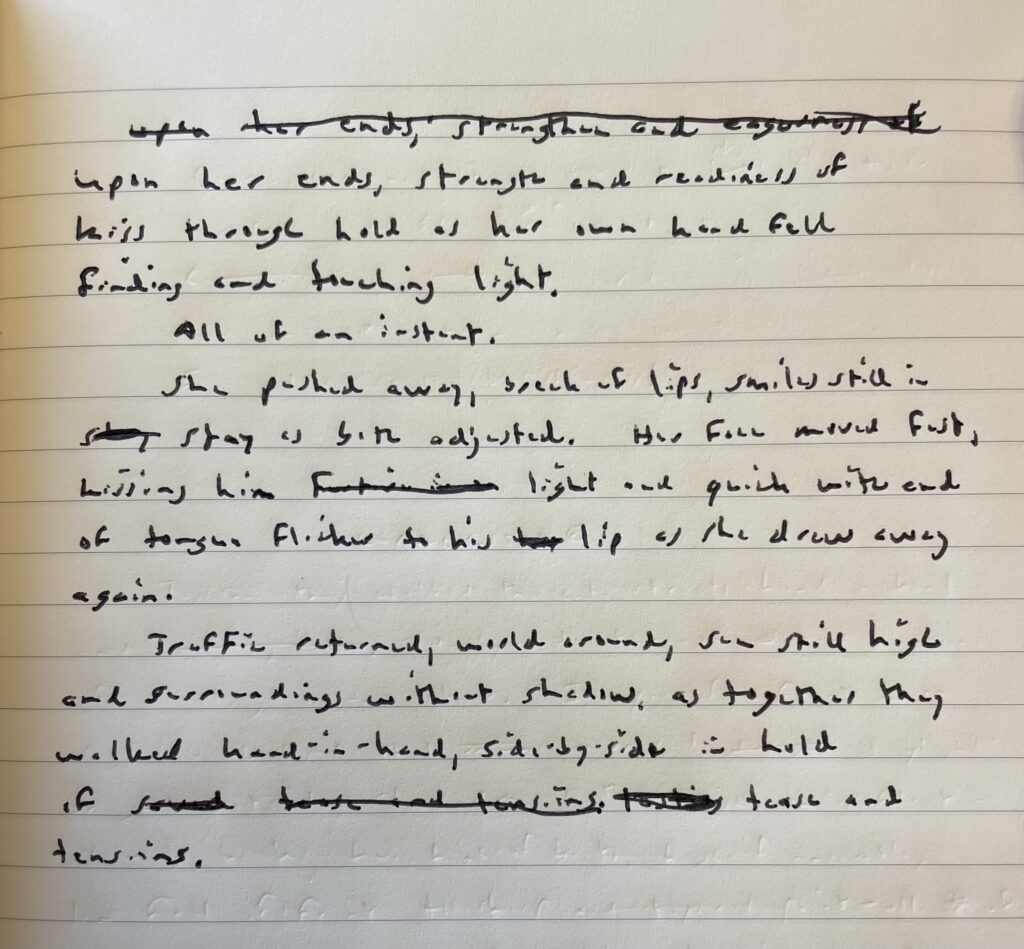 upon her ends, strengthen and eagerness of
upon her ends, strength and readiness of
kiss through hold as her own hand fell
finding and touching light.
All of an instant.
She pushed away, break of lips, smiles still in
stay stay as both adjusted. Her face moved fast,
kissing him light and quick with end
of tongue flicker to his lip as she drew away
again.
Traffic returned, world around, sun still high
and surroundings without shadow, as together they
walked hand-in-hand, side-by-side in hold
of tease and tensions. tease and
tensions.